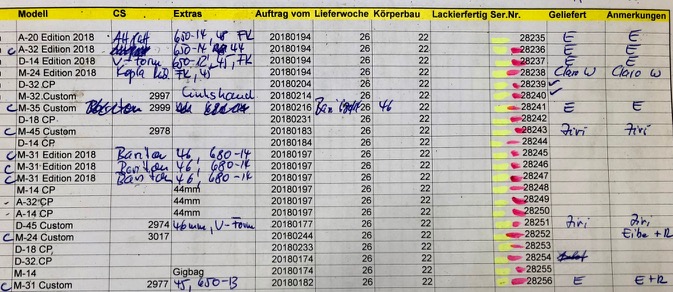 Modell CS Extras Auftrag vom Lieferwoche Körperbau Lackierfertig Ser.Nr. Geliefert Anmerkungen
A-20 Edition 2018 650-14, 45 FK 20180194 26 22 28235 E E
C A-32 Edition 2018 650-14 44 20180194 26 22 28236 E E
D-14 Edition 2018 V-Form 650-12, 45, FK 20180194 26 22 28237 E E
M-24 Edition 2018 FK, 45 20180194 26 22 28238 Claro W Claro W
D-32 CP 20180204 26 22 28239
M-32 Custom 2997 Linkshand 20180214 26 22 28240
C M-35 Custom 2999 20180216 26 46 22 28241 E E
D-18 CP 20180231 26 22 28242
C M-45 Custom 2978 20180183 26 22 28243 Ziri Ziri
D-14 CP 20180184 26 22 28244
C M-31 Edition 2018 Bariton 46, 680-14 20180197 26 22 28245
C M-31 Edition 2018 Bariton 46, 680-14 20180197 26 22 28246
C M-31 Edition 2018 Bariton 46, 680-14 20180197 26 22 28247
M-14 CP 44mm 20180197 26 22 28248
A-32 CP 44mm 20180197 26 22 28249
A-14 CP 44mm 20180197 26 22 28250
D-45 Custom 2974 46mm, V-Form 20180177 26 22 28251 Ziri Ziri
C M-24 Custom 3017 20180244 26 22 28252 Eibe + R
D-18 CP, 20180233 26 22 28253
D-32 CP 20180174 26 22 28254
M-14 Gigbag 20180174 26 22 28255
C M-31 Custom 2977 45, 650-13 20180182 26 22 28256 E E+R